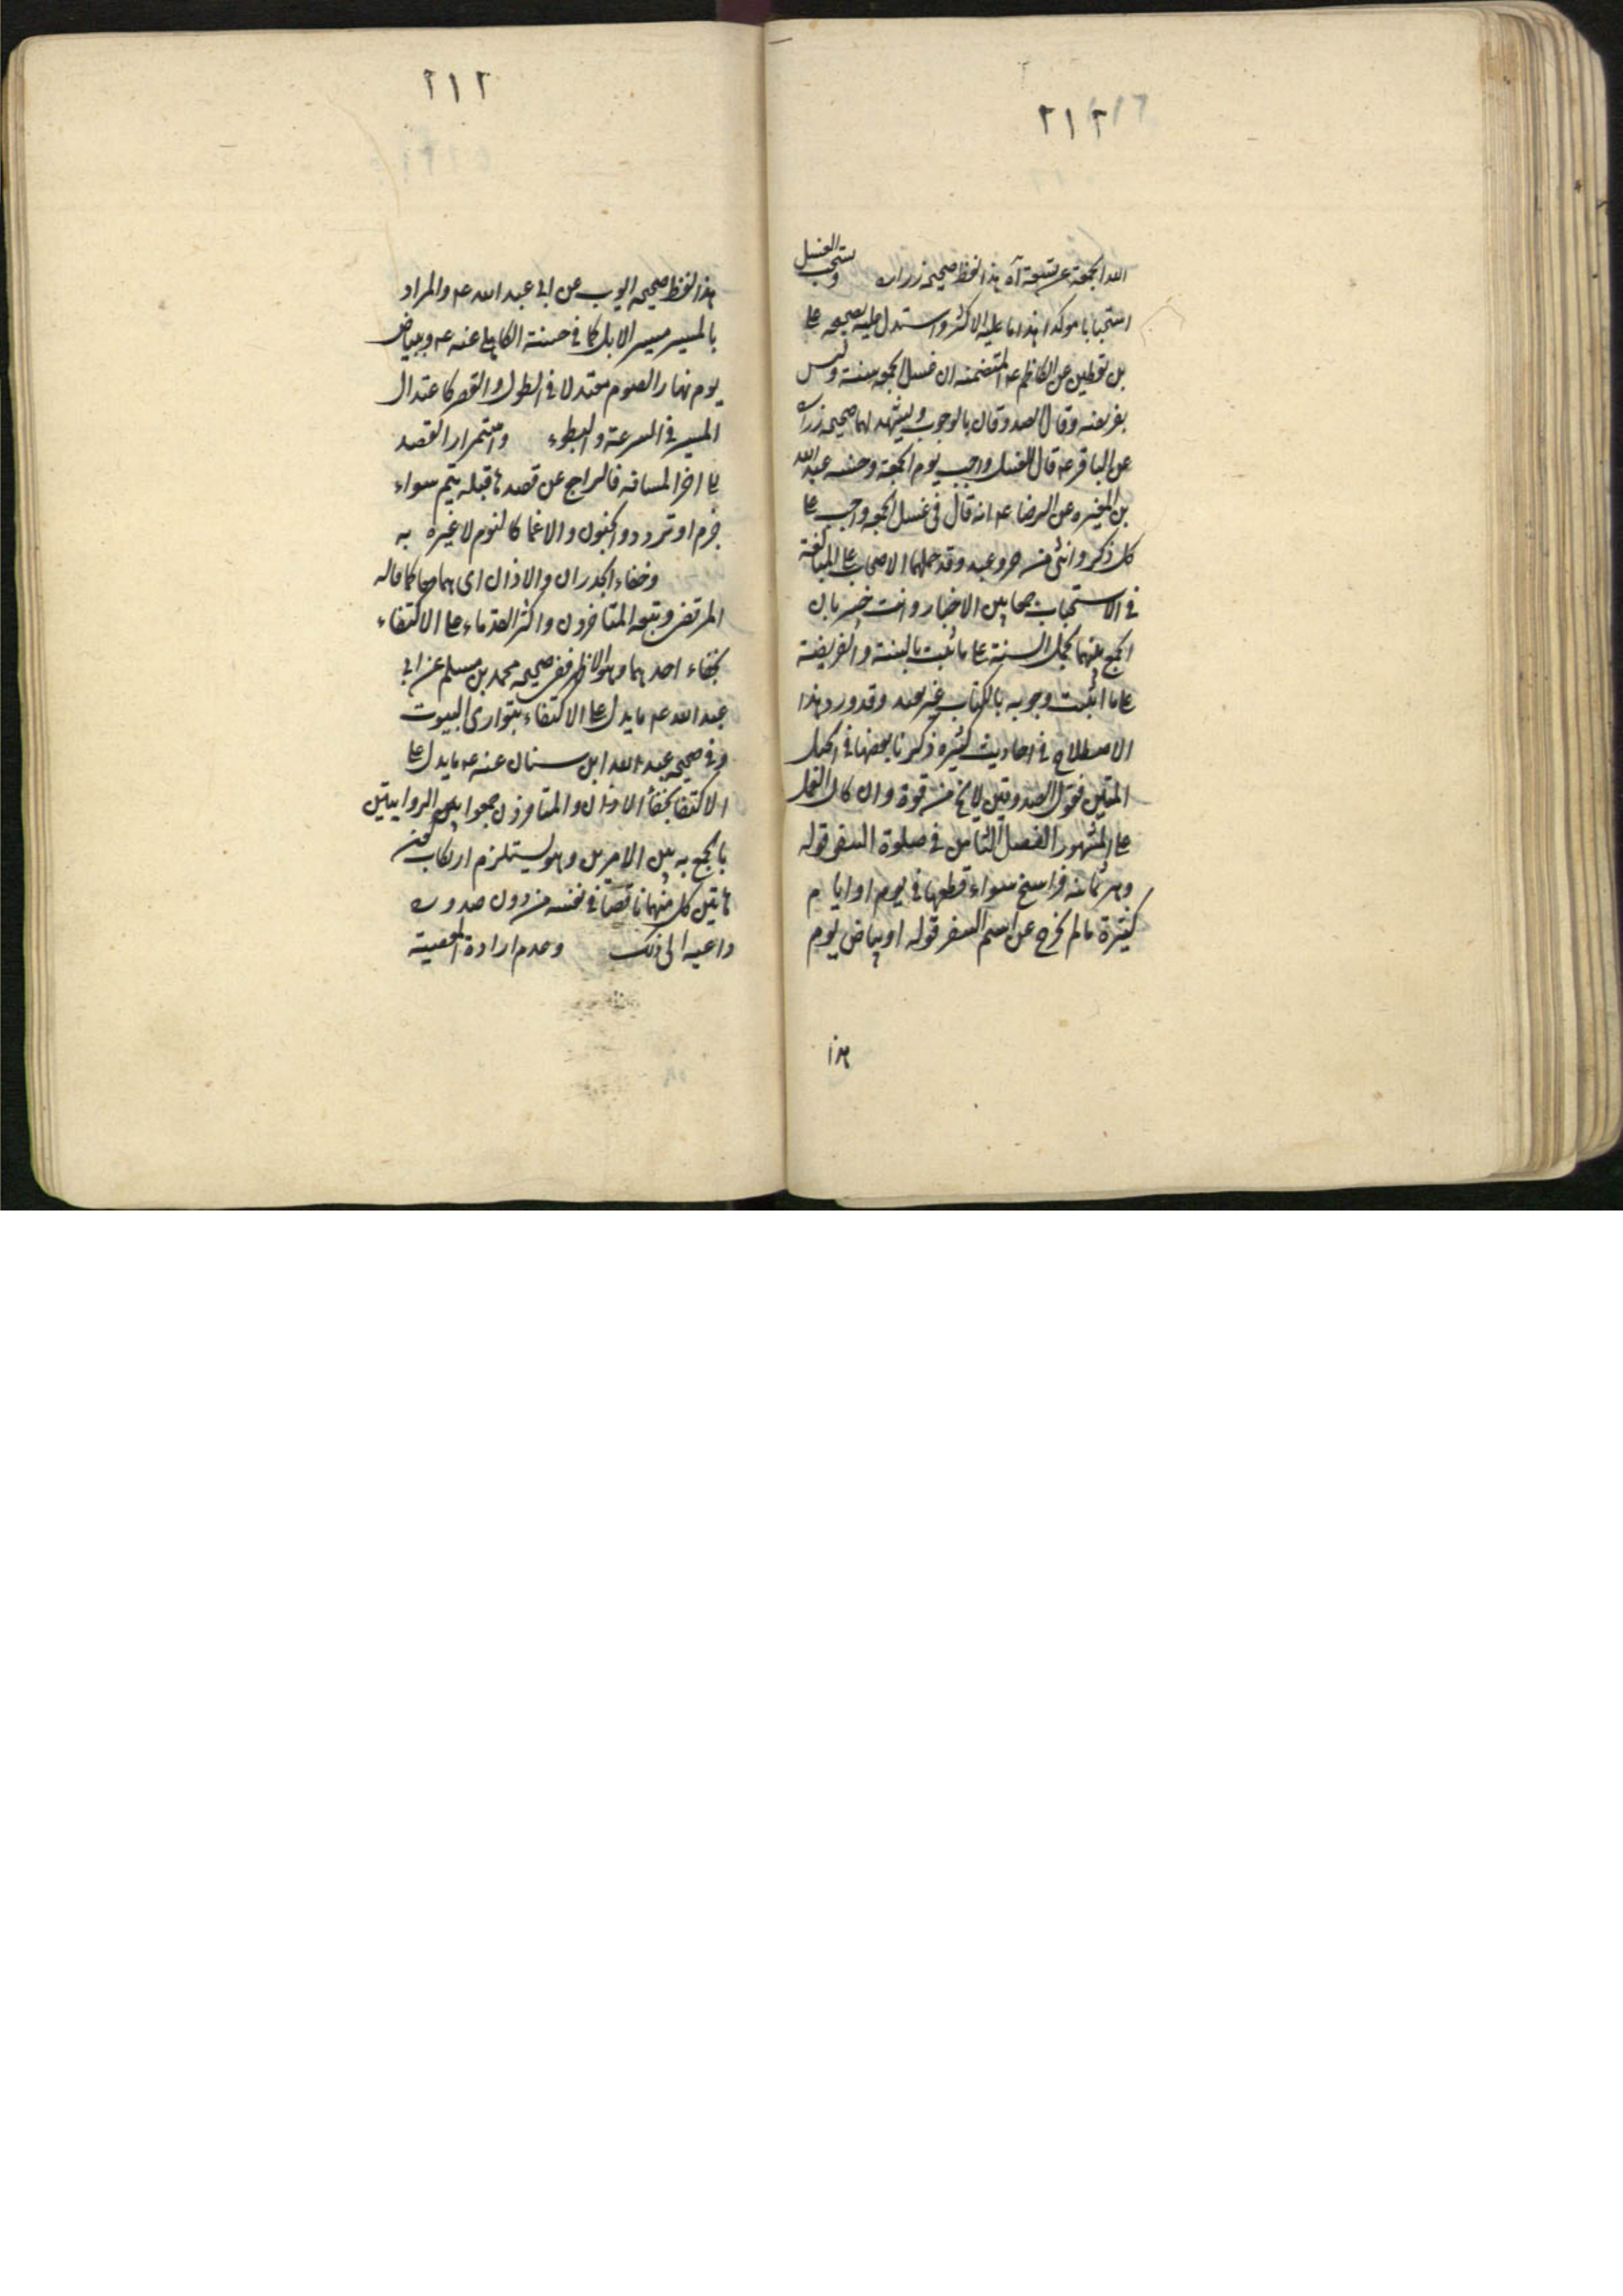 ٢١٢
الله الجمعة عن تسعة آه هذا لفظ صحيحة زرارة ويستحب الغسل
استحبابا موكدا هذا ما عليه الاكثر واستدل عليه بصحيحة علي
بن يقطين عن الكاظم عه المتضمنه ان غسل الجمعه سنة وليس
بفريضه وقال الصدوقان بالوجوب ويشهد لهما صحيحه زرارة
عن الباقر عه قال الغسل واجب يوم الجمعة وحسنه عبد الله
بن المغيره عن الرضا عه انه قال في غسل الجمعه واجب على
كل ذكر وانثى من حر وعبد وقد حملهما الاصحاب على المبالغة
في الاستحباب جمعا بين الاخبار وانت خبير بان
الجمع بينهما بحمل السنة على ما ثبت بالسنة والفريضة
على ما اثبت وجوبه بالكتاب غير بعيد وقد ورد هذا
الاصطلاح في احاديث كثيره ذكرنا بعضها في الحبل
المتين فقول الصدوقين لا يخ من قوة وان كان العمل
على المشهور الفصل الثامن في صلوة السفر قوله
وهي ثمانيه فراسخ سواء قطعها في يوم او ايام
كثيرة ما لم يخرج عن اسم السفر قوله او بياض يوم
هذا
٢١٢
هذا لفظ صحيحه ايوب عن ابي عبد الله عه والمراد
بالمسير مسير الابل كما في حسنة الكاهلي عنه عه وببياض
يوم نهار الصوم معتدلا في الطول والقصر كاعتدال
المسير في السرعة والبطوء واستمرار القصد
على اخر المسافه فالراجع عن قصدها قبله يتم سواء
جزم او تردد والجنون والاغما كالنوم لا غيره به
وخفاء الجدران والاذان اى هما معا كما قاله
المرتضى وتبعه المتاخرون واكثر القدماء على الاكتفاء
بخفاء احدهما وهو الاظهر ففي صحيحه محمد بن مسلم عن ابي
عبد الله عه ما يدل على الاكتفاء بتوارى البيوت
وفي صحيحه عبد الله ابن سنان عنه عه ما يدل على
الاكتفا بخفأ الاذان والمتاخرون جمعوا بين الروايتين
بالجمع به بين الامرين وهو يستلزم ارتكاب كون
هاتين كل منهما ناقصا في نفسه من دون صدوره
داعيه الى ذلك وعدم ارادة المعصية